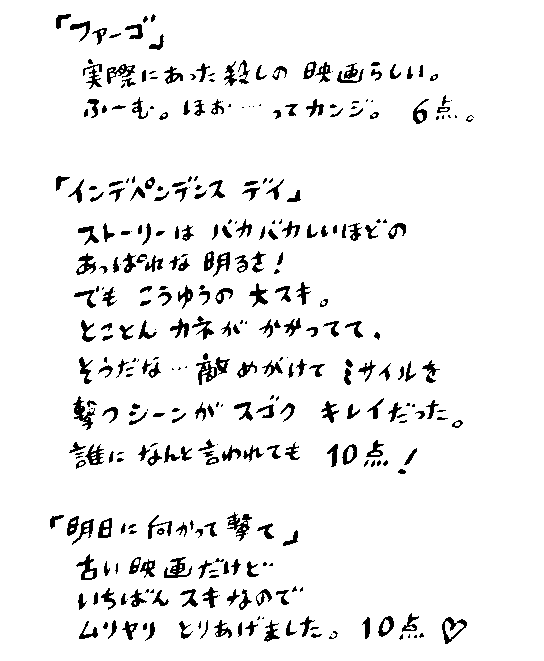 「ファーゴ」
実際にあった殺しの 映画らしい。
ふーむ。ほぉ……ってカンジ。 6点。
「インデペンデンス デイ」
ストーリーは バカバカしいほどの
あっぱれな 明るさ!
でも こうゆうの 大スキ。
とことん カネが かかってて、
そうだな…敵めがけて ミサイルを
撃つシーンが スゴク キレイだった。
誰に なんと言われても 10点!
「明日に向かって撃て」
古い映画だけど
いちばん スキなので
ムリヤリ とりあげました。 10点♡